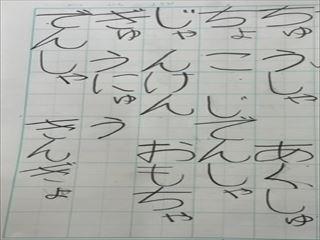 ちゅうしゃ あくしゅ
ちょこ じてんしゃ
じゃんけん おもちゃ
ぎゅうにゅう
でんしゃ きんぎょ